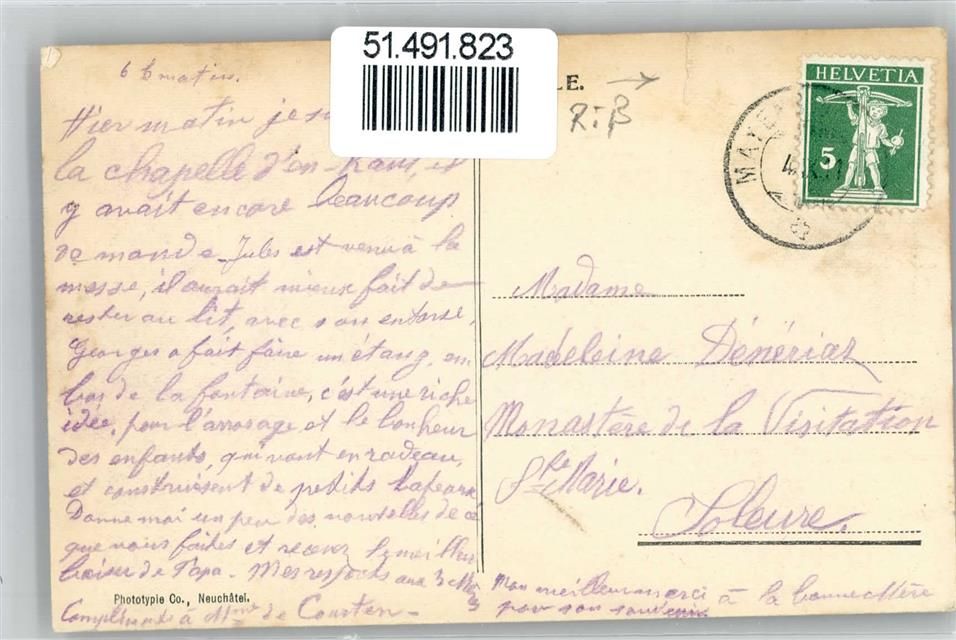 51.491.823
E.
R-β
HELVETIA
5
MAYE
6 h matin.
Hier matin je
la chapelle d'en haut, il
y avait encore beaucoup
de monde Jules est venu à la
messe, il aurait mieux fait de
rester au lit, avec son entorse,
Georges a fait faire un étang, en
bas de la fontaine, c'est une riche
idée, pour l'arrosage et le bonheur
des enfants, qui vont en radeau,
et construisent de petits bateaux
Donne moi un peu des nouvelles de ce
que vous faites et recevez le meilleur
baiser de Papa. Mes respects aux 3 Mères
Compliments à Mme de Courten-
Phototypie Co., Neuchâtel.
Madame
Madeleine Dénériaz
Monastère de la Visitation
Ste Marie.
Soleure.
Mon meilleur merci à la bonne Mère
pour son souvenir.